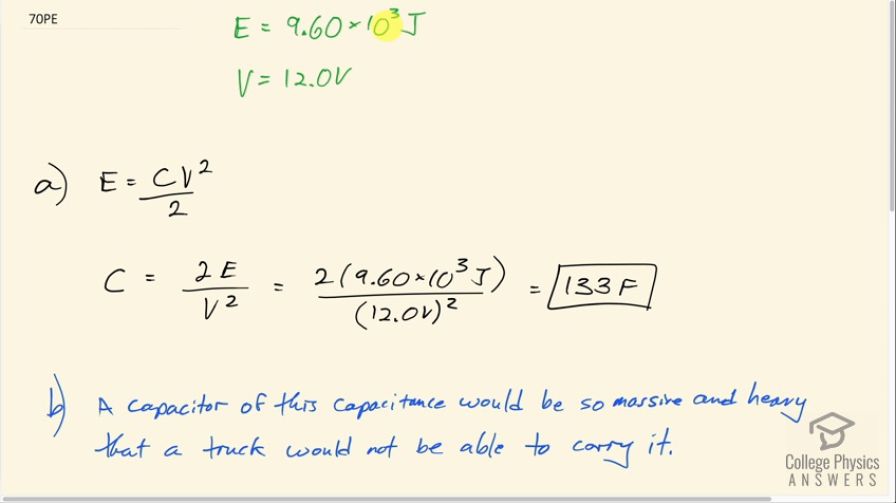 70PE
E = 9.60 × 10³ J
V = 12.0V
a) E = CV²/2
C = 2E/V² = 2(9.60×10³ J)/(12.0V)² = 133 F
b) A capacitor of this capacitance would be so massive and heavy
that a truck would not be able to carry it.
College Physics
ANSWERS